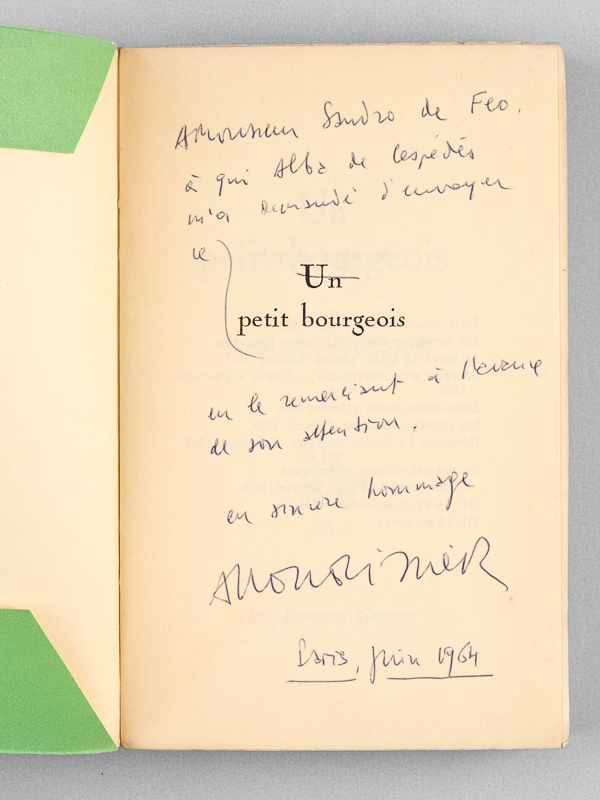 A Monsieur Sandro de Feo,
à qui Alba de Cespédès
m'a demandé d'envoyer
ce
Un
petit bourgeois
en le remerciant à l'avance
de son attention.
en sincère hommage
Paris, Juin 1964